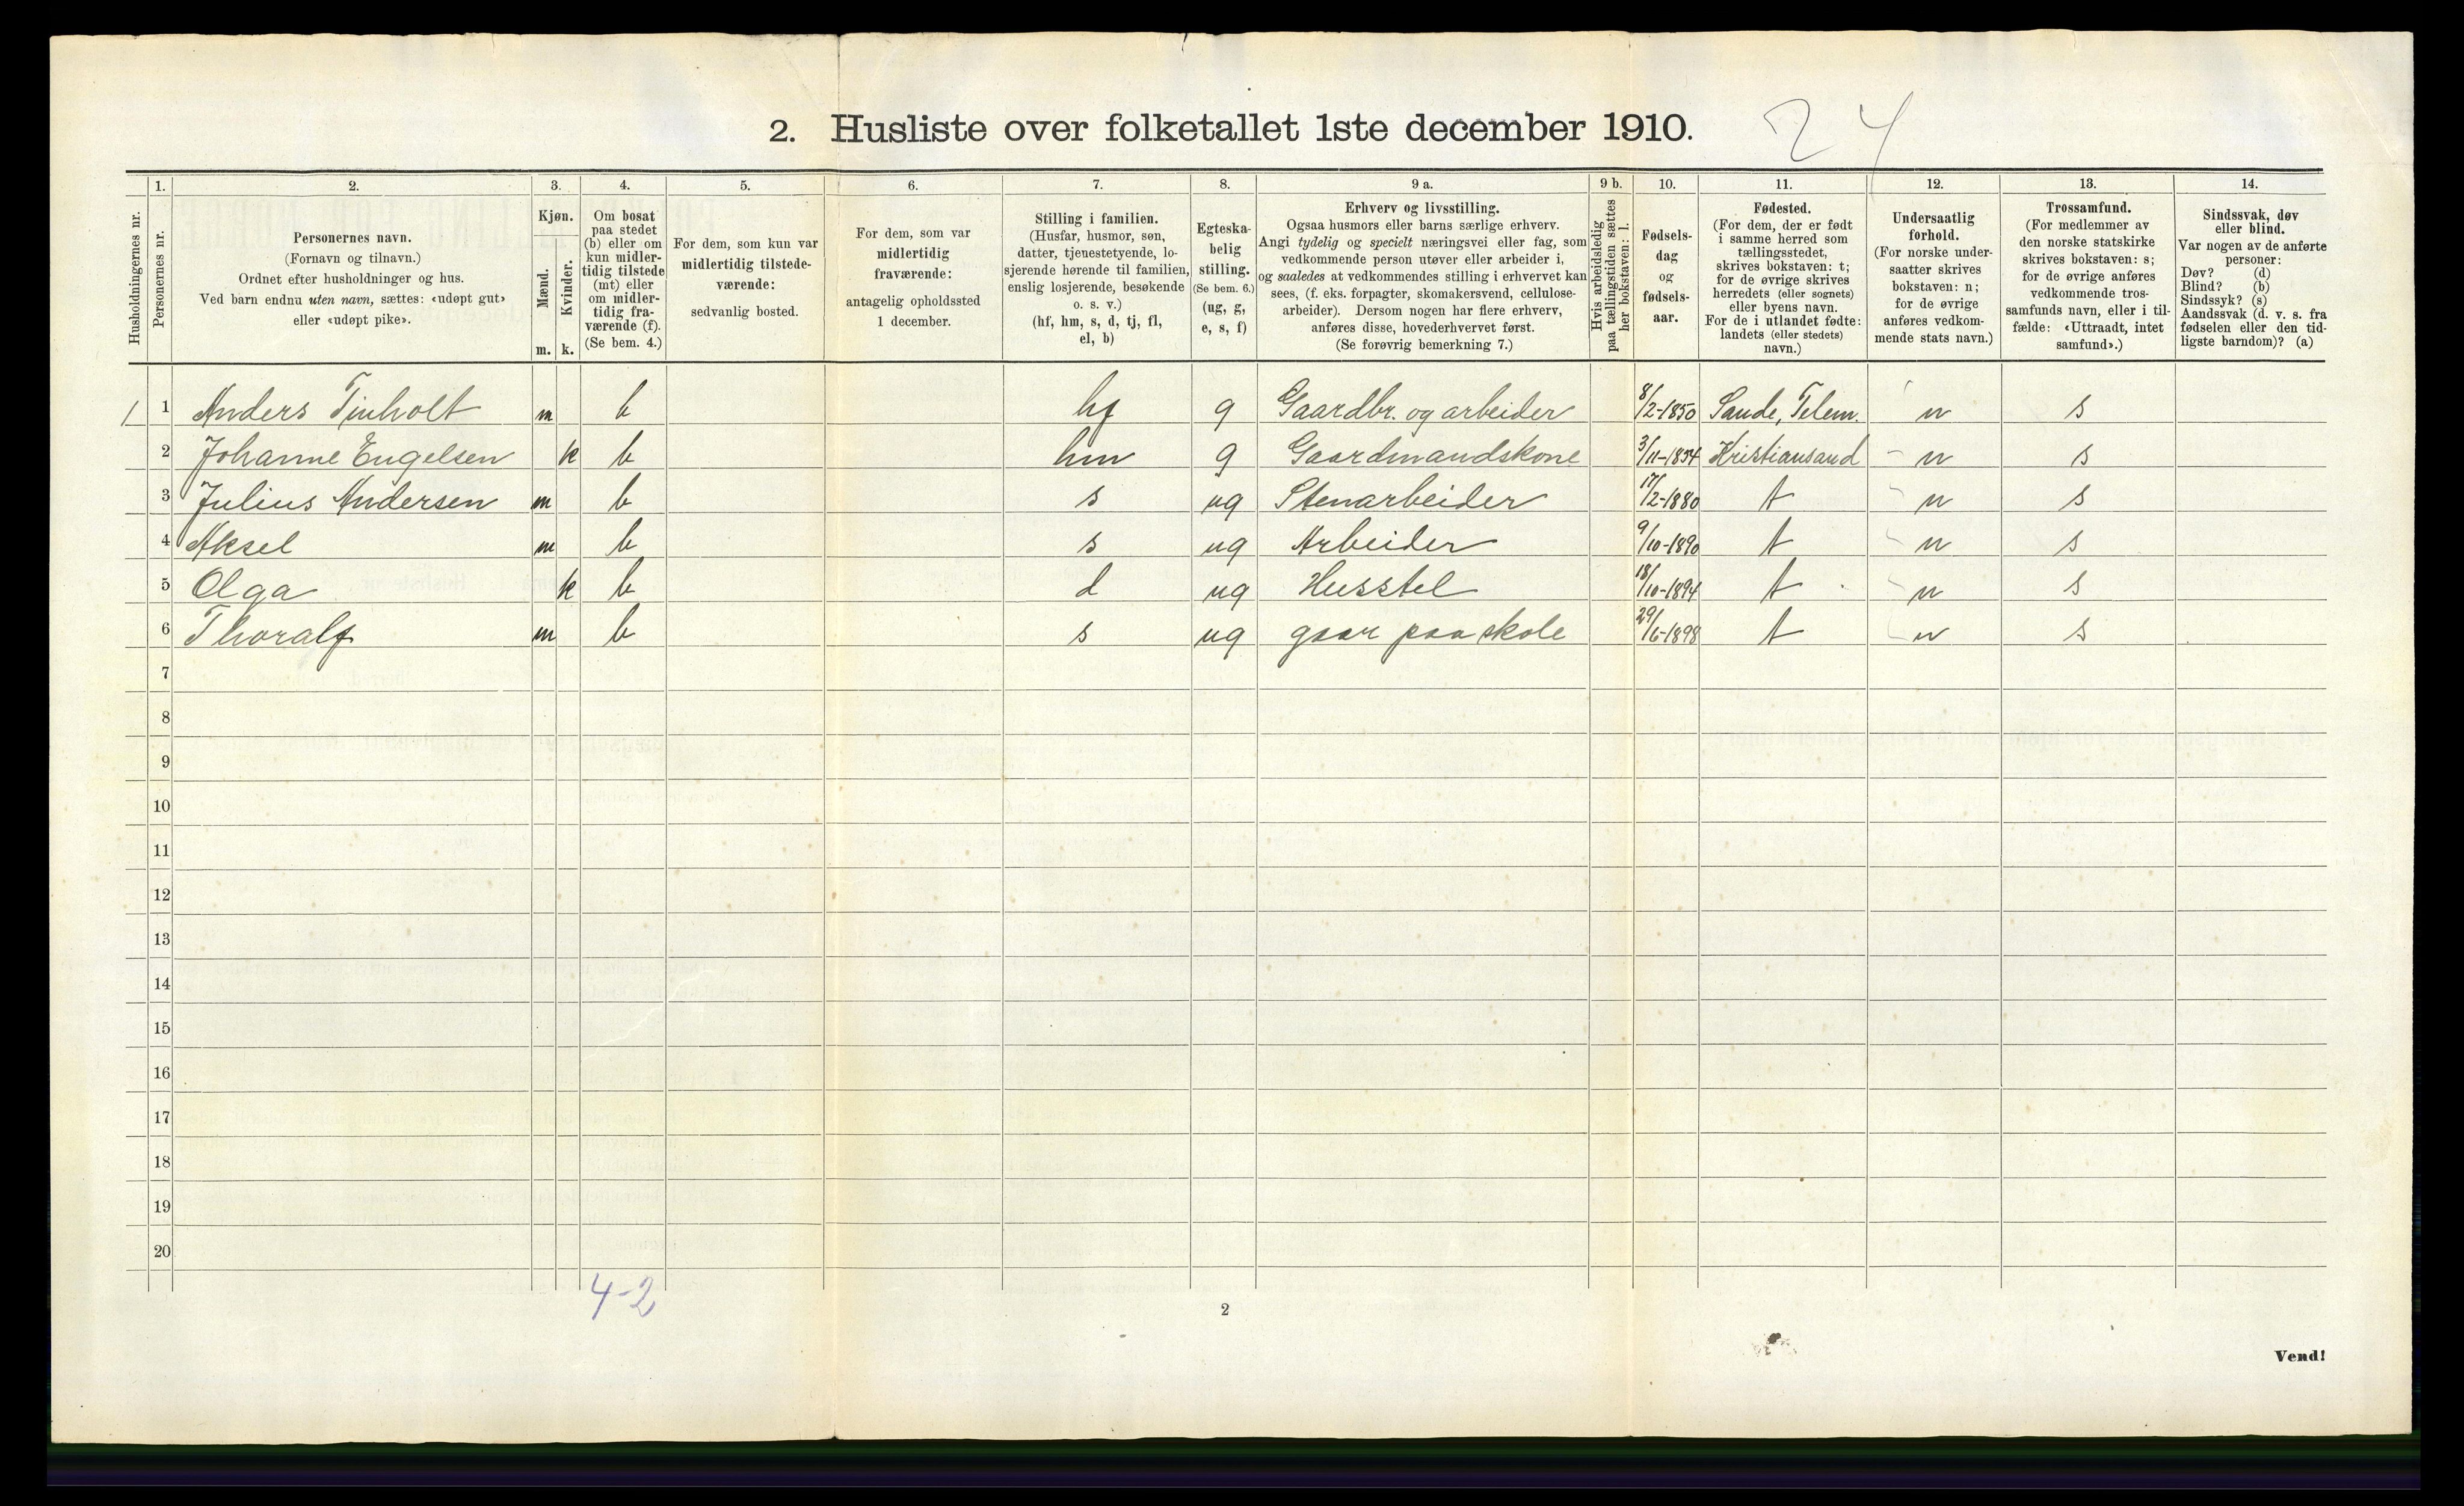 2. Husliste over folketallet 1ste december 1910. 24
Husholdningernes nr.
1. Personernes nr.
2. Personernes navn.
(Fornavn og tilnavn.)
Ordnet efter husholdninger og hus.
Ved barn endnu uten navn, sættes: «udøpt gut»
eller «udøpt pike».
3. Kjøn.
Mænd. m.
Kvinder. k.
4. Om bosat
paa stedet
(b) eller om
kun midler-
tidig tilstede
(mt) eller
om midler-
tidig fra-
værende (f).
(Se bem. 4.)
5. For dem, som kun var
midlertidig tilstede-
værende:
sedvanlig bosted.
6. For dem, som var
midlertidig
fraværende:
antagelig opholdssted
1 december.
7. Stilling i familien.
(Husfar, husmor, søn,
datter, tjenestetyende, lo-
sjerende hørende til familien,
enslig losjerende, besøkende
o. s. v.)
(hf, hm, s, d, tj, fl,
el, b)
8. Egteska-
belig
stilling.
(Se bem. 6.)
(ug, g,
e, s, f)
9 a. Erhverv og livsstilling.
Ogsaa husmors eller barns særlige erhverv.
Angi tydelig og specielt næringsvei eller fag, som
vedkommende person utøver eller arbeider i,
og saaledes at vedkommendes stilling i erhvervet kan
sees, (f. eks. forpagter, skomakersvend, cellulose-
arbeider). Dersom nogen har flere erhverv,
anføres disse, hovederhvervet først.
(Se forøvrig bemerkning 7.)
9 b. Hvis arbeidsledig
paa tællingstiden sættes
her bokstaven: l.
10. Fødsels-
dag
og
fødsels-
aar.
11. Fødested.
(For dem, der er født
i samme herred som
tællingsstedet,
skrives bokstaven: t;
for de øvrige skrives
herredets (eller sognets)
eller byens navn.
For de i utlandet fødte:
landets (eller stedets)
navn.)
12. Undersaatlig
forhold.
(For norske under-
saatter skrives
bokstaven: n;
for de øvrige
anføres vedkom-
mende stats navn.)
13. Trossamfund.
(For medlemmer av
den norske statskirke
skrives bokstaven: s;
for de øvrige anføres
vedkommende tros-
samfunds navn, eller i til-
fælde: «Uttraadt, intet
samfund».)
14. Sindssvak, døv
eller blind.
Var nogen av de anførte
personer:
Døv? (d)
Blind? (b)
Sindssyk? (s)
Aandssvak (d. v. s. fra
fødselen eller den tid-
ligste barndom)? (a)
1 1 Anders Tinholt m b hf g Gaardbr. og arbeider 8/2-1850 Sande, Telem. n s
2 Johanne Engelsen k b hm g Gaardmandskone 3/11-1854 Kristiansand n s
3 Julius Andersen m b s ug Stenarbeider 17/2-1880 t n s
4 Aksel m b s ug Arbeider 9/10-1890 t n s
5 Olga k b d ug Husstel 18/10-1894 t n s
6 Thoralf m b s ug gaar paa skole 29/6-1898 t n s
7
8
9
10
11
12
13
14
15
16
17
18
19
20
4-2
2
Vend!